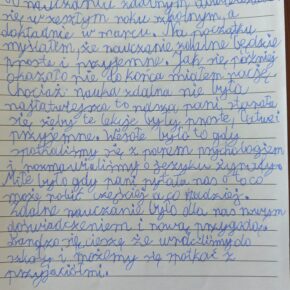 O nauczaniu zdalnym dowiedziałam
się w zeszłym roku szkolnym, a
dokładnie w marcu. Na początku
myślałem, że nauczanie zdalne będzie
proste i przyjemne. Jak się później
okazało nie do końca miałem rację.
Chociaż nauka zdalna nie była
najłatwiejsza to nasza pani starała
się, żeby te lekcje były proste, łatwe i
przyjemne. Wesoło było to gdy
spotkaliśmy się z panem psychologiem
i rozmawialiśmy o języku żyrafy.
Miłe było gdy pani pytała nas o to co
może robić częściej a co rzadziej.
Zdalne nauczanie było dla nas nowym
doświadczeniem i nową przygodą.
Bardzo się cieszę że wróciliśmy do
szkoły i możemy się spotkać z
przyjaciółmi.